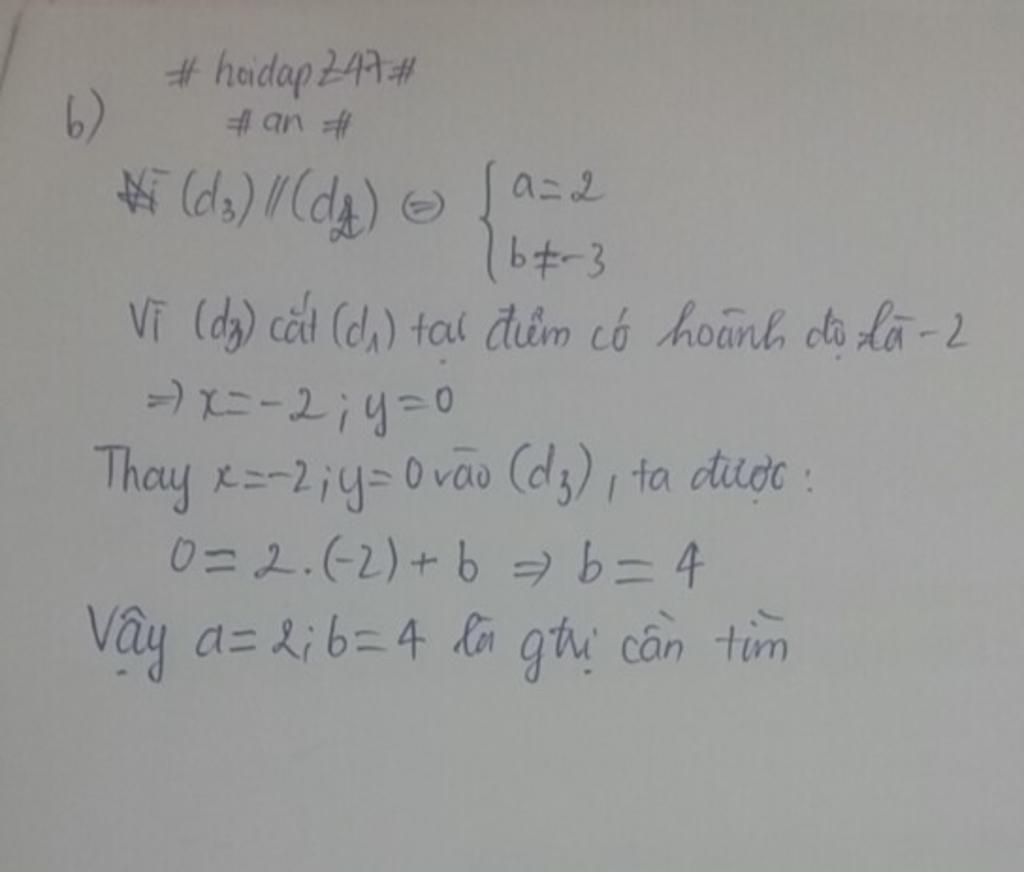 # hoidap247#
b) # an #
Vì (d₃) // (d₂) ⇔ { a = 2
b ≠ -3
Vì (d₃) cắt (d₁) tại điểm có hoành độ là -2
=> x = -2 ; y = 0
Thay x = -2 ; y = 0 vào (d₃), ta được :
0 = 2.(-2) + b => b = 4
Vậy a = 2 ; b = 4 là gtrị cần tìm